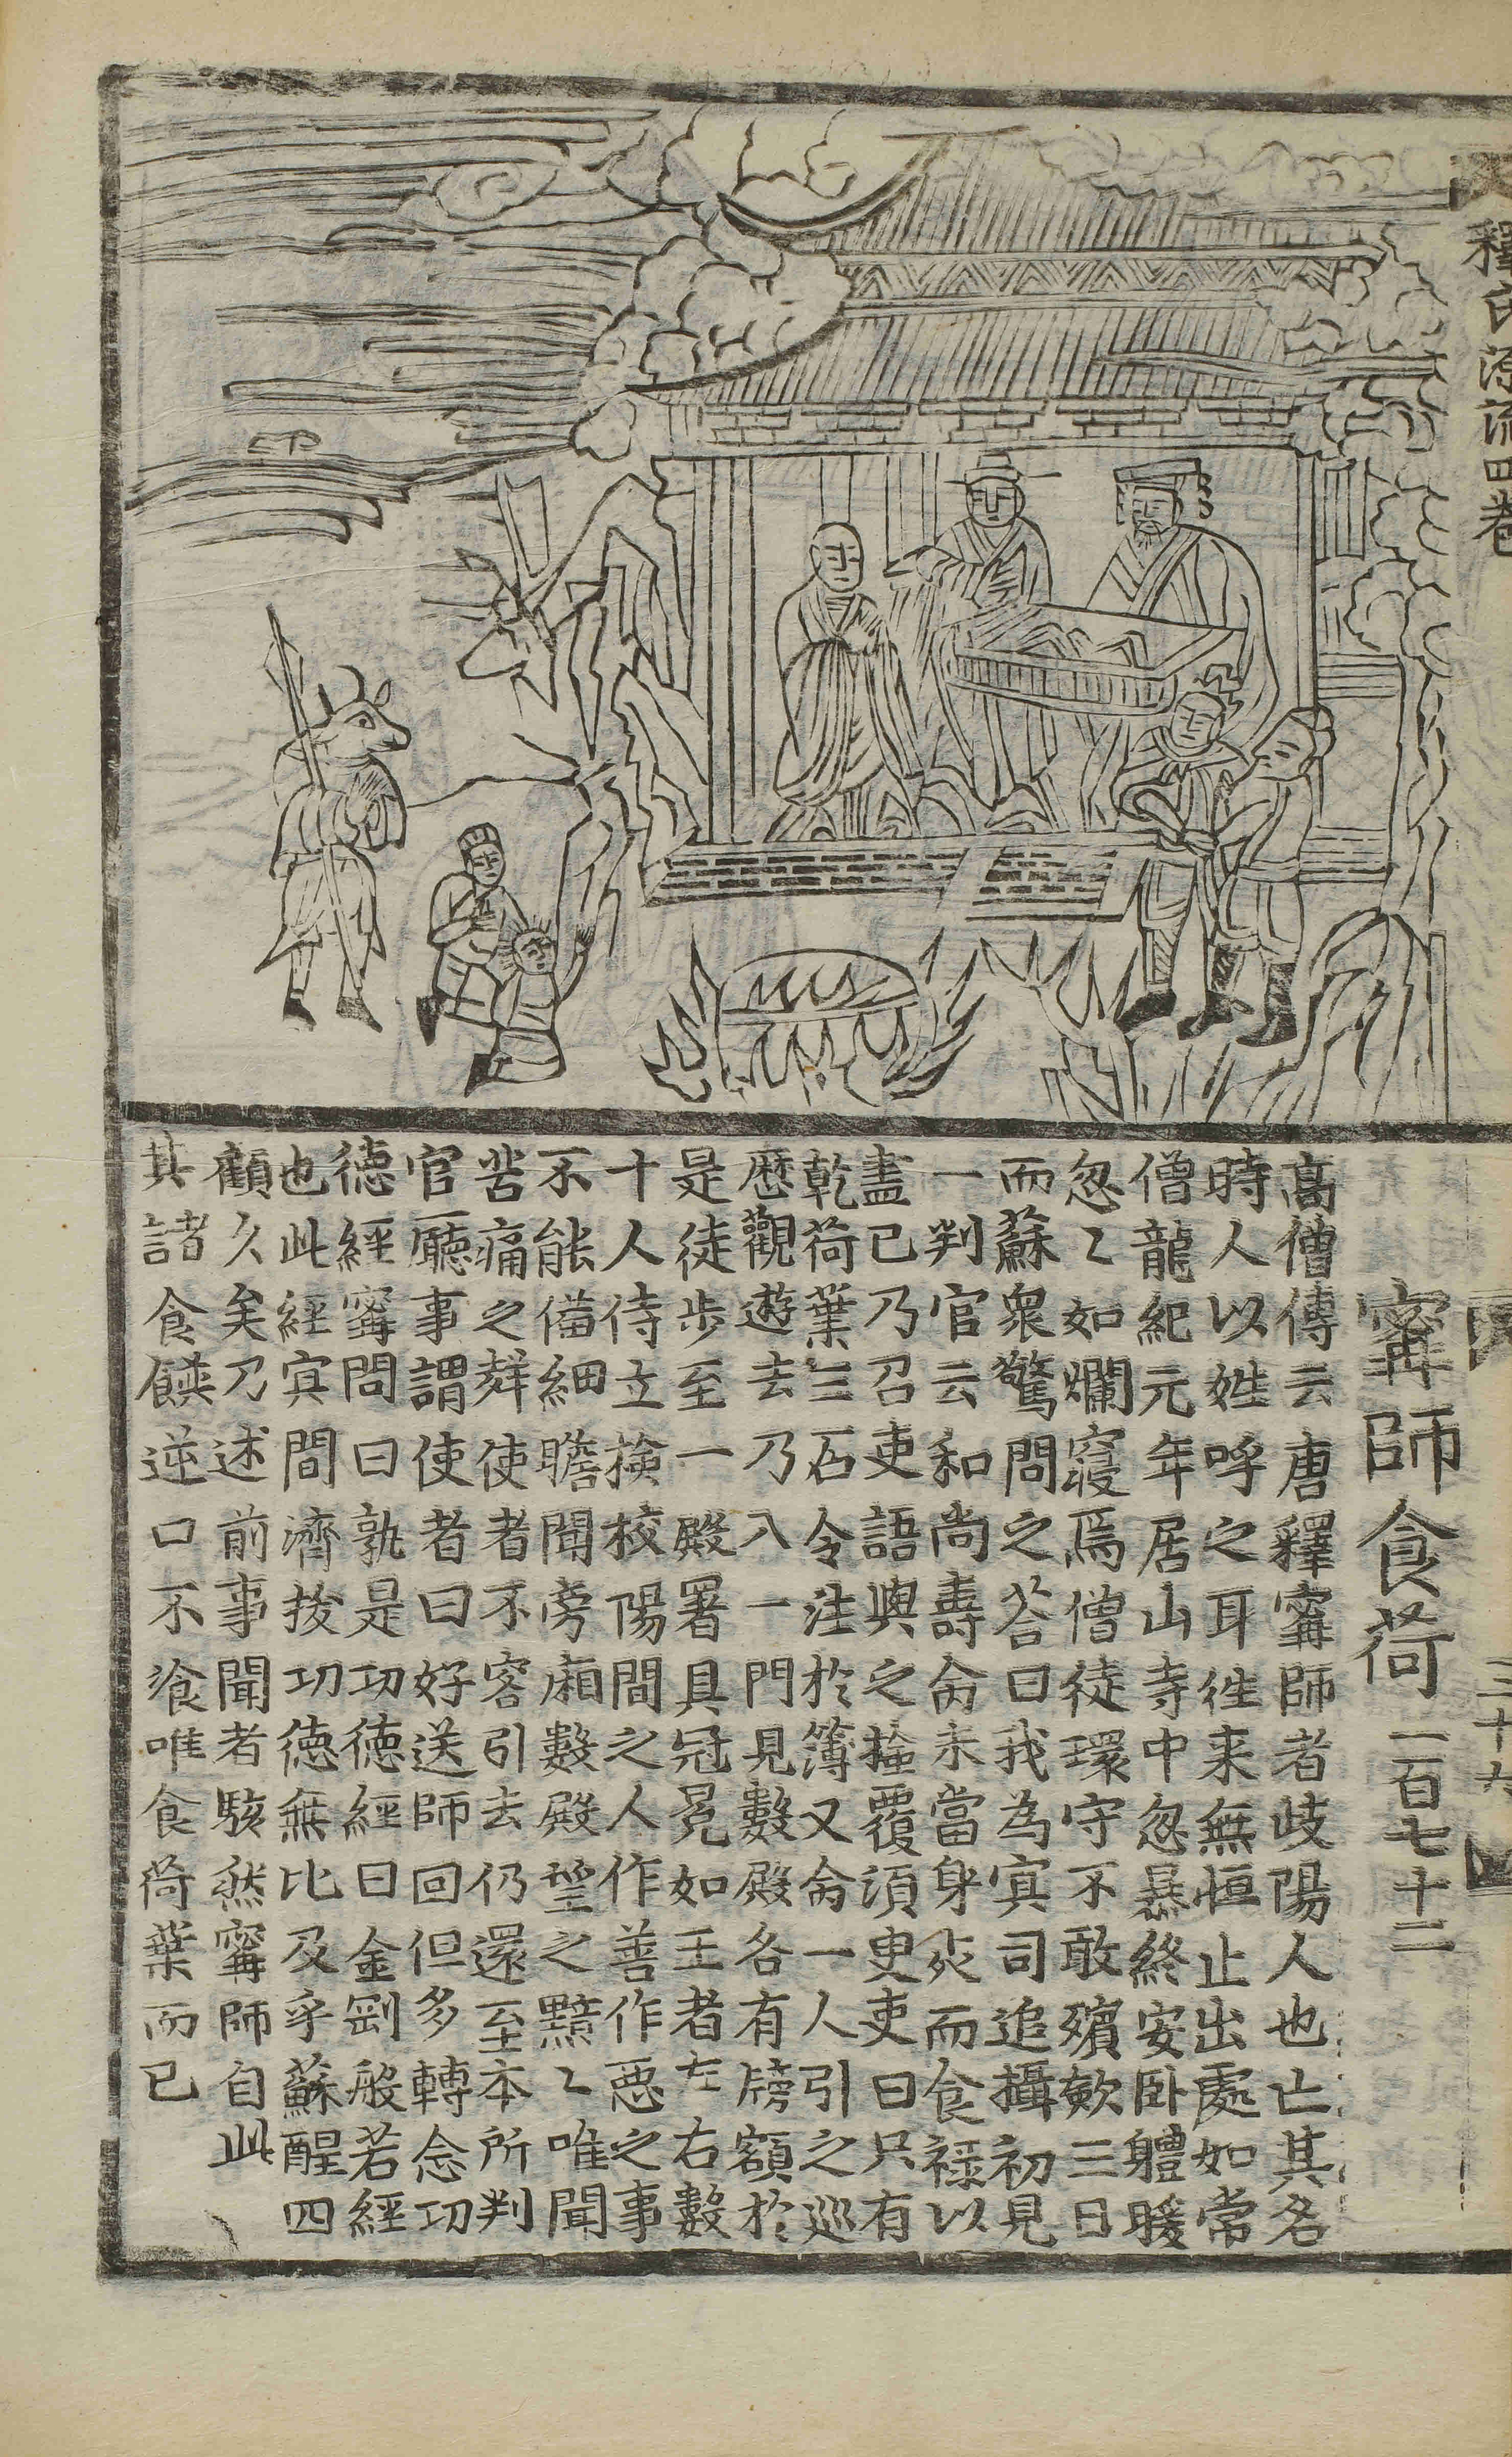 釋氏源流四卷
三十九
甯師食荷 一百七十二
高僧傳云唐釋甯師者歧陽人也亡其名
時人以姓呼之耳徃来無恒止出處如常
僧龍紀元年居山寺中忽暴終安卧軆暖
忽〻如爛寢焉僧徒環守不敢殯斂三日
而蘇衆驚問之荅曰我為㝠司追攝初見
一判官云和尚壽命未當身死而食祿以
盡已乃召吏語與之撿覆須臾吏曰只有
乾荷葉三石令注於簿又命一人引之巡
歷觀遊去乃入一門見數殿各有牓額於
是徒步至一殿署具冠冕如王者左右數
十人侍立撿校陽間之人作善作惡之事
不能備細瞻聞旁廂數殿望之黯〻唯聞
苦痛之聲使者不容引去仍還至本所判
官廳事謂使者曰好送師回但多轉念功
德經甯問曰孰是功德經曰金剛般若經
也此經㝠間濟拔功德無比及乎蘇醒四
顧久矣乃述前事聞者駭然甯師自此
其諸食饌逆口不飡唯食荷葉而已